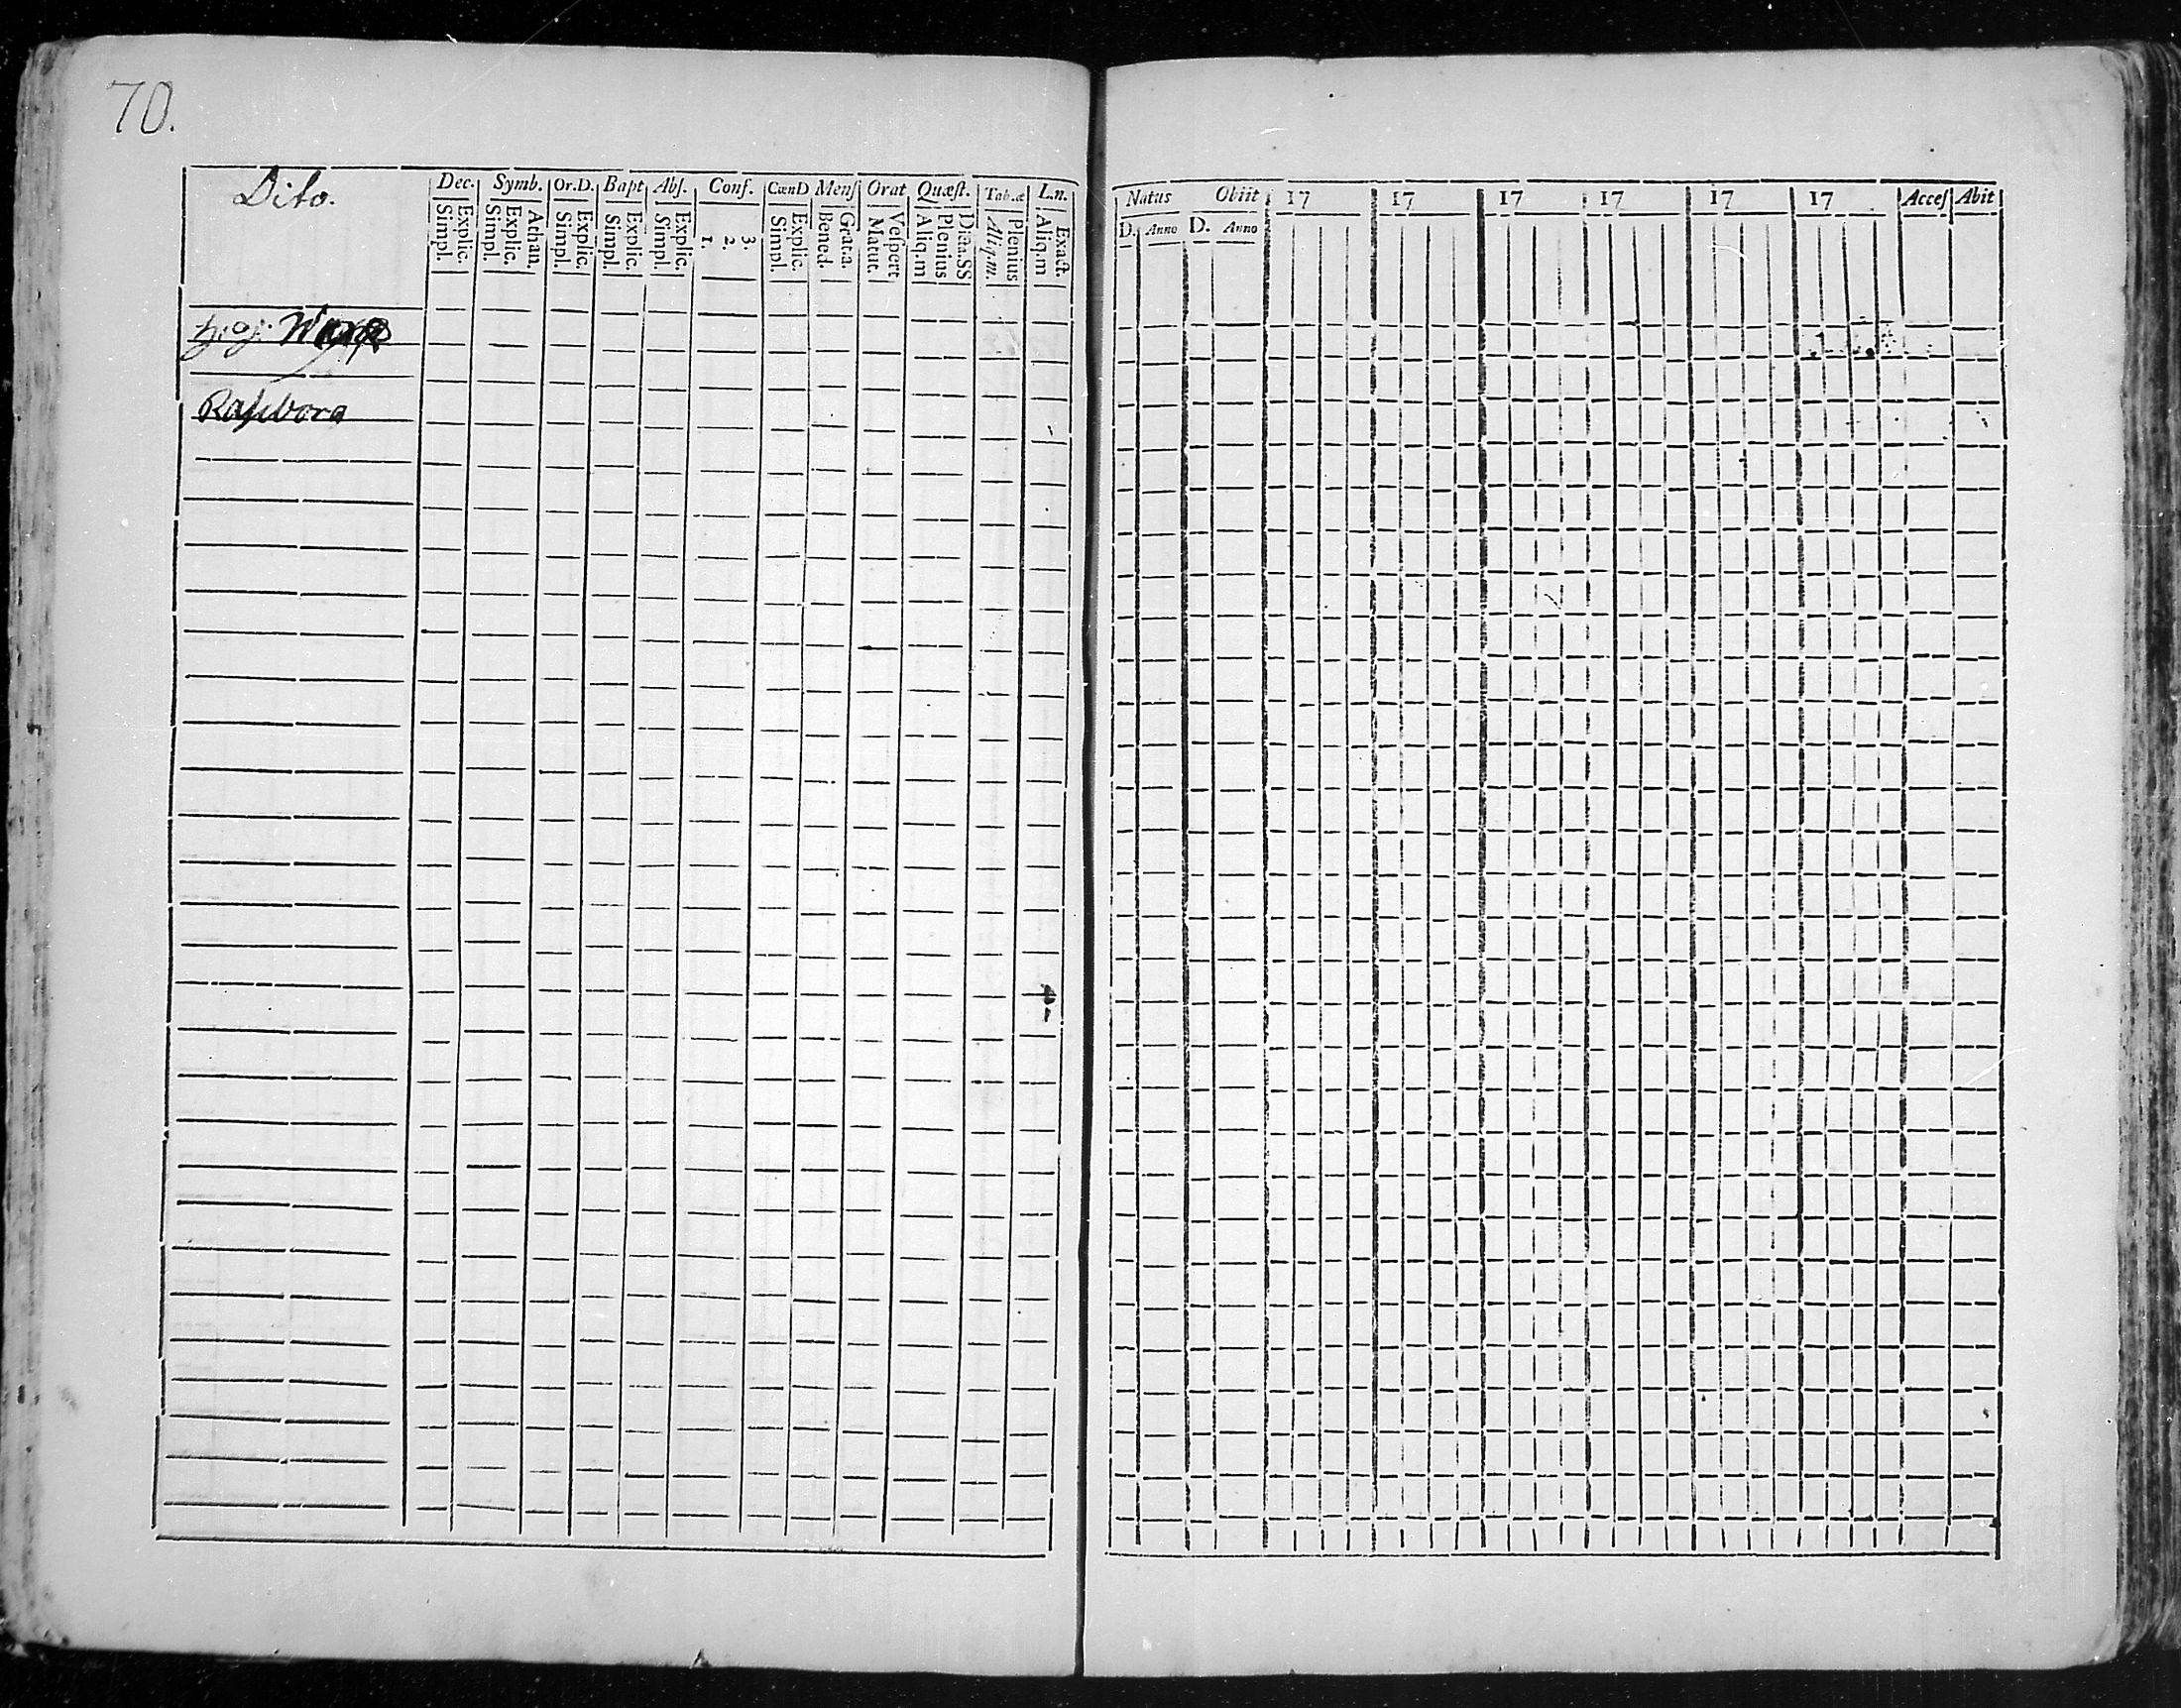 70.
Dito.
Dec. Symb. Or.D. Bapt Abſ. Conf. CœnD Menſ Orat Quæſt. Tab.æ L.n.
Simpl. Explic. Simpl. Explic. Athan. Simpl. Explic. Simpl. Explic. Simpl. Explic. 1. 2. 3. Simpl. Explic. Bened. Grat.a. Matut. Veſpert Aliq.m Plenius Dicta.SS Aliq.m. Plenius Aliq.m Exact.
Natus Obiit 17 17 17 17 17 17 Acceſ Abit
D. Anno D. Anno